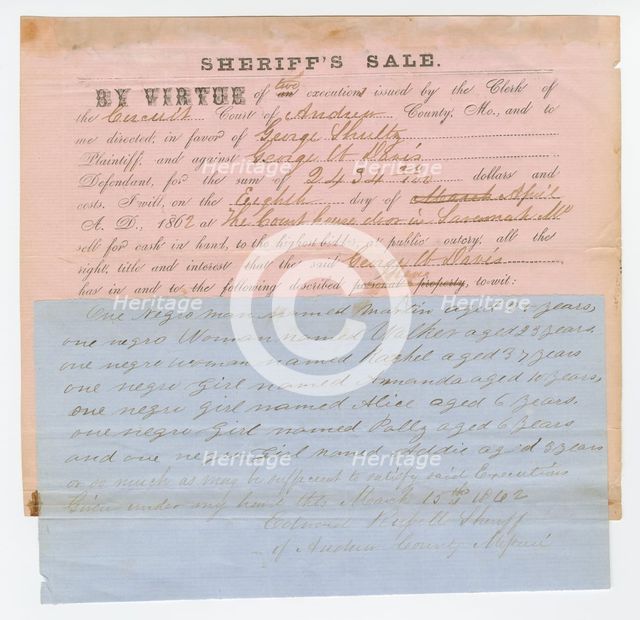 SHERIFF'S SALE.
BY VIRTUE of two an executions issued by the Clerk of
the Circuit Court of Andrew County, Mo., and to
me directed, in favor of George Shultz
Plaintiff, and against George W Davis
Defendant, for the sum of 2434 dollars and
costs. I will, on the Eighth day of March April
A. D., 1862 at The Court house door in Savannah Mo
sell for cash in hand, to the highest bidder, at public outcry, all the
right, title and interest that the said George W Davis
has in and to the following described personal Slaves property, to-wit:
One Negro man named Martin aged years,
one negro Woman named aged 23 years
one negro woman named Rachel aged 37 years
one negro Girl named Amanda aged 10 years,
one negro girl named Alice aged 6 years,
one negro Girl named Polly aged 6 years
and one negro Girl named Addie aged 3 years
or so much as may be sufficient to satisfy said Executions
Given under my hand this March 15th 1862
Edmond Russell Sheriff
of Andrew County Missouri
Heritage
Heritage
Heritage
Heritage
Heritage
Heritage
Heritage
Heritage
Heritage
C